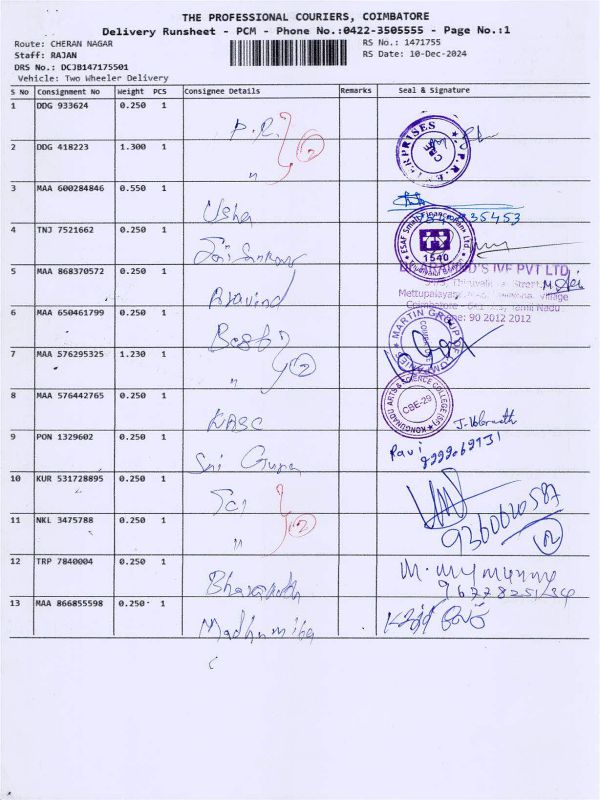 THE PROFESSIONAL COURIERS, COIMBATORE
Delivery Runsheet - PCM - Phone No.:0422-3505555 - Page No.:1
Route: CHERAN NAGAR
RS No.: 1471755
Staff: RAJAN
RS Date: 10-Dec-2024
DRS No.: DCJB147175501
Vehicle: Two Wheeler Delivery
S No Consignment No Weight PCS Consignee Details Remarks Seal & Signature
1 DDG 933624 0.250 1 P.R.
2 DDG 418223 1.300 1 " 2
3 MAA 600284846 0.550 1 Usha
4 TNJ 7521662 0.250 1
ESAF Small Finance Bank Ltd. 1540
5 MAA 868370572 0.250 1 Aravind
'S IVF PVT LTD
Mettupalayam Village
Coimbatore Tamil Nadu
90 2012 2012
6 MAA 650461799 0.250 1
MARTIN GROUP OF
7 MAA 576295325 1.230 1 " 2
8 MAA 576442765 0.250 1 KASC
KONGUNADU ARTS & SCIENCE COLLEGE
CBE-29
9 PON 1329602 0.250 1 Sri Guru
Ravi
10 KUR 531728895 0.250 1 Sai
9360620587
11 NKL 3475788 0.250 1 " 2
2
12 TRP 7840004 0.250 1
13 MAA 866855598 0.250 1 Madhumitha